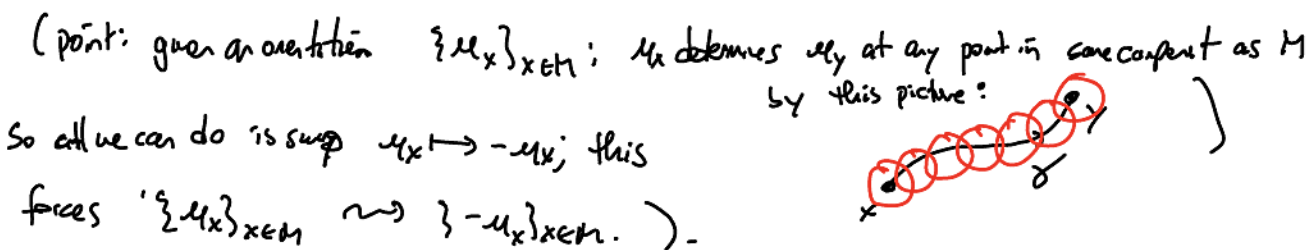 (point: given an orientation {μ_x}_{x∈M}; μ_x determines μ_y at any point in same component as M
by this picture:
So all we can do is swap μ_x ↦ -μ_x; this
x γ y )
forces {μ_x}_{x∈M} ⇝ {-μ_x}_{x∈M}. ).